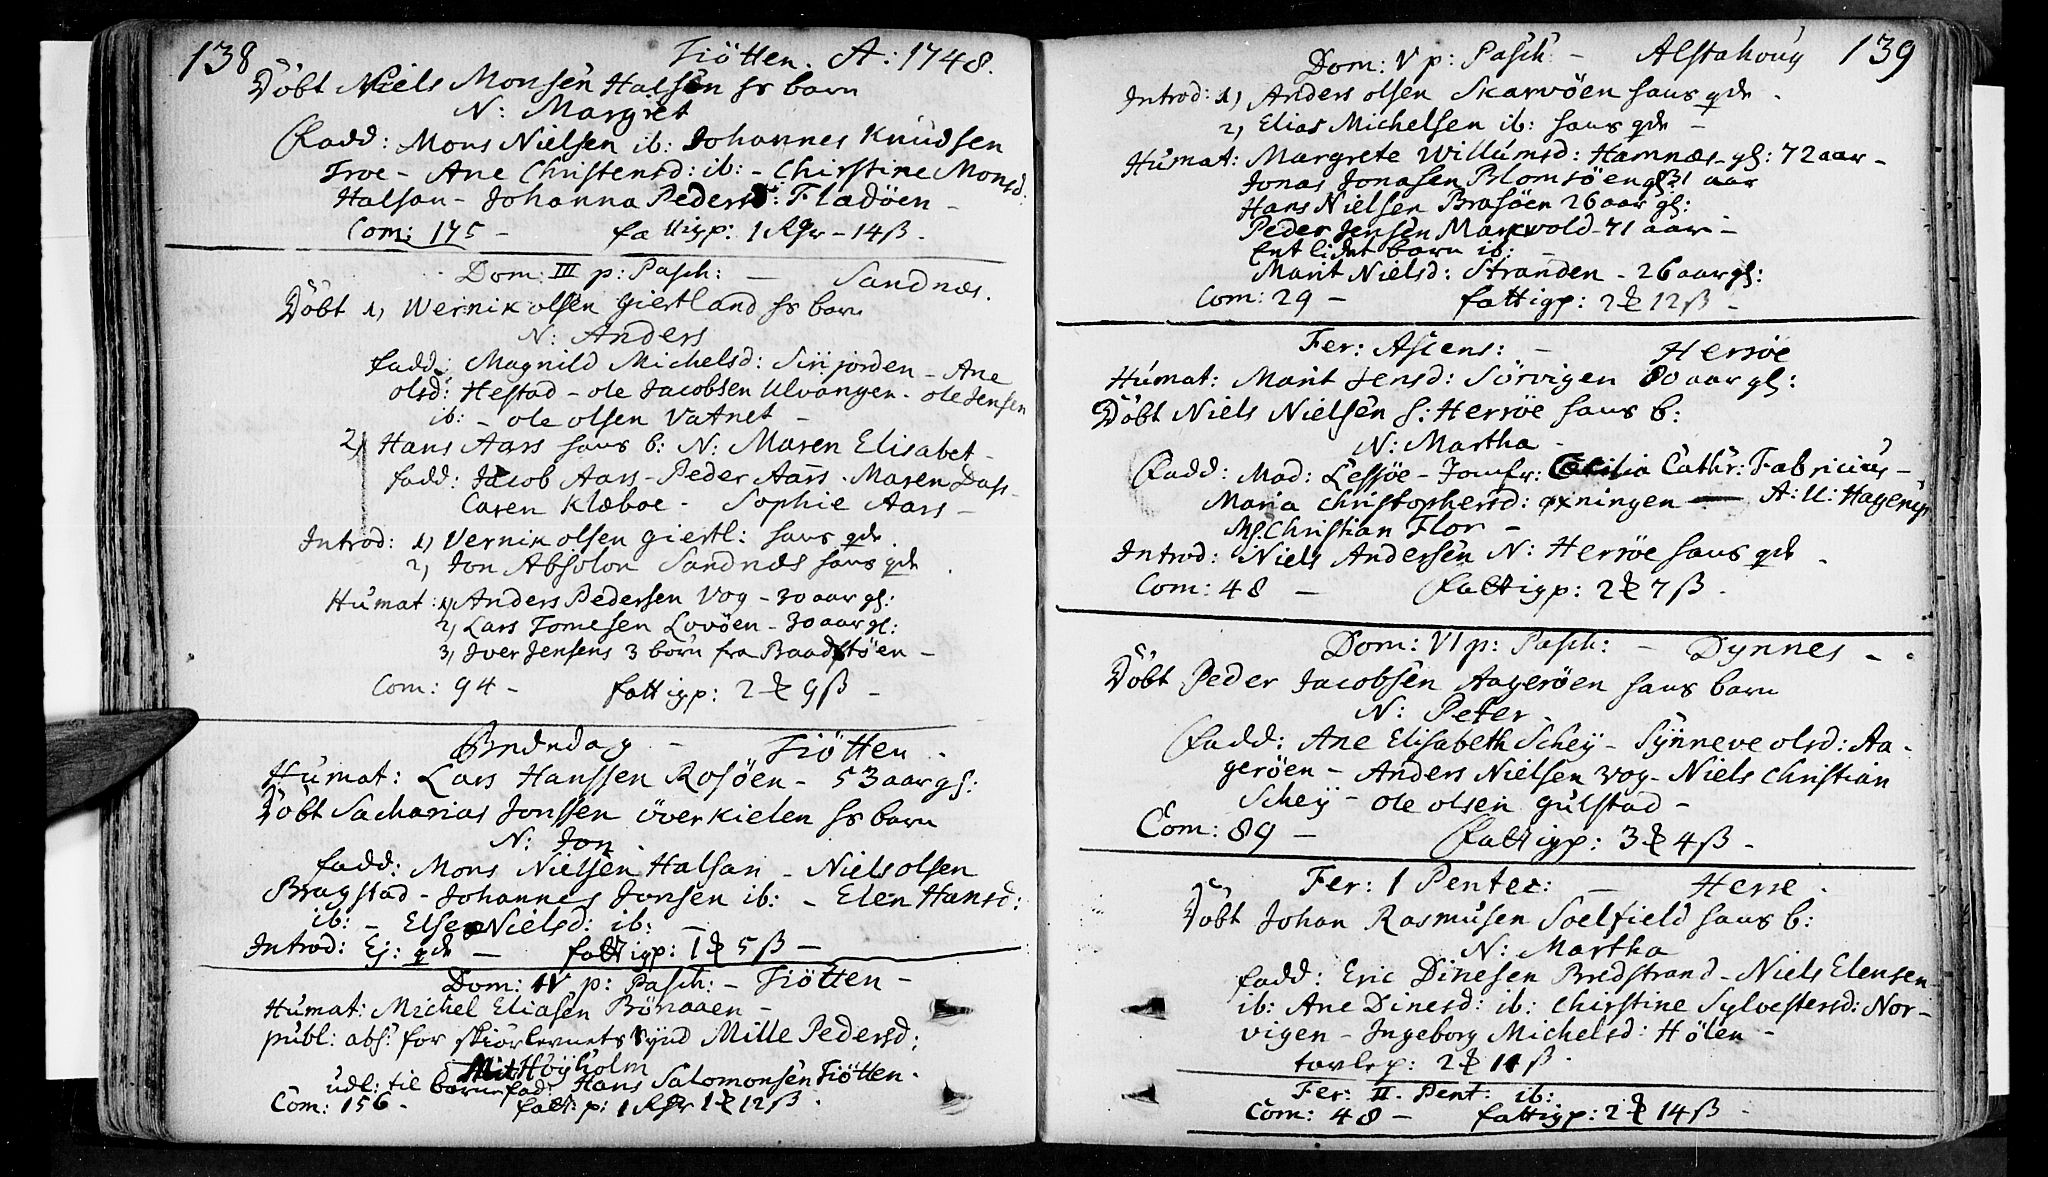 138 Tiötten. A: 1748.
Döbt Niels Monsen Halsen hs barn
N: Margret
Fadd: Mons Nielsen ib: Johannes Knudsen
Troe - Ane Christensd: ib: - Chirstine Monsd:
Halsan - Johanna Pedersd: Fladöen -
Com: 175 - fattigp: 1 Rdr - 14 ß.
Dom: III p: Pasch: - Sandnæs.
Döbt 1, Wernik olsen giertland hs barn
N: Anders
fadd: Magnild Michelsd: Sinjorden - Ane
olsd: Hestad - ole Jacobsen Ulvangen - ole Jensen
ib: - ole olsen Vatnet -
2, Hans Aars hans b: N: Maren Elisabet -
fadd: Jacob Aars - Peder Aars - Maren Dass -
Caren Klæboe - Sophie Aars -
Introd: 1, Vernik olsen giertl: hans qde.
2, Jon Absolon Sandnæs hans qde.
Humat: 1, Anders Pedersen Vog - 30 aar gl:
2, Lars Tomesen Lovöen - 30 aar gl:
3, Iver Jensens 3 börn fra Baadstöen -
Com: 94 - fattigp: 2 ₰ 9 ß -
Bededag - Tiötten.
Humat: Lars Hanssen Rosöen - 53 aar gl:
Döbt Sacharias Jonssen överkielen hs barn
N: Jon.
fadd: Mons Nielsen Halsan - Niels olsen
Bragstad - Johannes Jonsen ib: - Elen Hansd:
ib: - Else Nielsd: ib: -
Introd: Ej: qde - fattigp: 1 ₰ 5 ß -
Dom: IV p: Pasch: - Tiötten -
Humat: Michel Eliasen Bönaaen -
publ: abs: for skiörlevnets synd Mille Pedersd:
Höyholm
udl: til barnefad: Hans Salomonsen Tiötten.
Com: 156 - fatt: p: 1 Rdr 1 ₰ 12 ß.
Dom: V p: Pasch: - Alstahoug 139
Introd: 1, Anders olsen Skarvöen hans qde.
2, Elias Michelsen ib: hans qde -
Humat: Margrete Willumsd: Hamnæs - gl: 72 aar -
Jonas Jonasen Blomsöen gl: 31 aar
Hans Nielsen Brasöen 26 aar gl:
Peder Jensen Markvold - 71 aar -
Ent lidet barn ib:
Marit Nielsd: Stranden - 26 aar gl:
Com: 29 - fattigp: 2 ₰ 12 ß -
Fer: Ascens: - Herröe
Humat: Marit Jensd: Sörvigen 80 aar gl:
Döbt Niels Nielsen S: Herröe hans b:
N: Martha -
Fadd: Mad: Lessöe - Jomfr: Cecilia Cathr: Fabricius -
Maria Christophersd: öxningen - A: U: Hagerup
Ms. Christian Flor -
Introd: Niels Andersen N: Herröe hans qde.
Com: 48 - Fattigp: 2 ₰ 7 ß.
Dom: VI p: Pasch: - Dynnes -
Döbt Peder Jacobsen Aageröen hans barn
N: Peter.
Fadd: Ane Elisabeth Scheÿ - Synneve olsd: Aa-
geröen - Anders Nielsen Vog - Niels Christian
Scheÿ - ole olsen gulstad -
Com: 89 - Fattigp: 3 ₰ 4 ß -
Fer: 1 Pentec: - Herre.
Döbt Johan Rasmusen Soelfield hans b:
N: Martha
fadd: Eric Dinesen Bredstrand - Niels Elensen
ib: Ane Dinesd: ib: Chirstine Sylvestersd: Nor-
vigen - Ingeborg Michelsd: Hölen -
tavlep: 2 ₰ 11 ß.
Fer: II. Pent: ib:
Com: 48 - fattigp: 2 ₰ 14 ß -